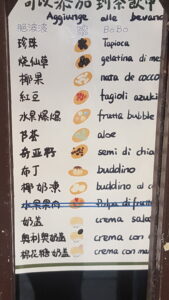 可以添加到茶飲中
Aggiunge alle bevan
Bobo
珍珠 Tapioca
烧仙草 gelatina di me
椰果 nata de cocco
紅豆 fagioli azuki
水果爆爆 frutta bubble
芦荟 aloe
奇亚籽 semi di chia
布丁 buddino
椰奶凍 buddino al c
水果果肉 Polpa di frutta
奶盖 crema salat
奥利奥奶盖 crema con
棉花糖奶盖 crema con ma